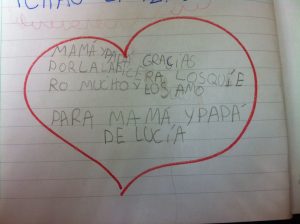 MAMÁ Y PAPÁ GRACIAS
POR LA
LOS QUIE
RO MUCHO Y LOS AMO
PARA MAMÁ Y PAPÁ
DE LUCÍA